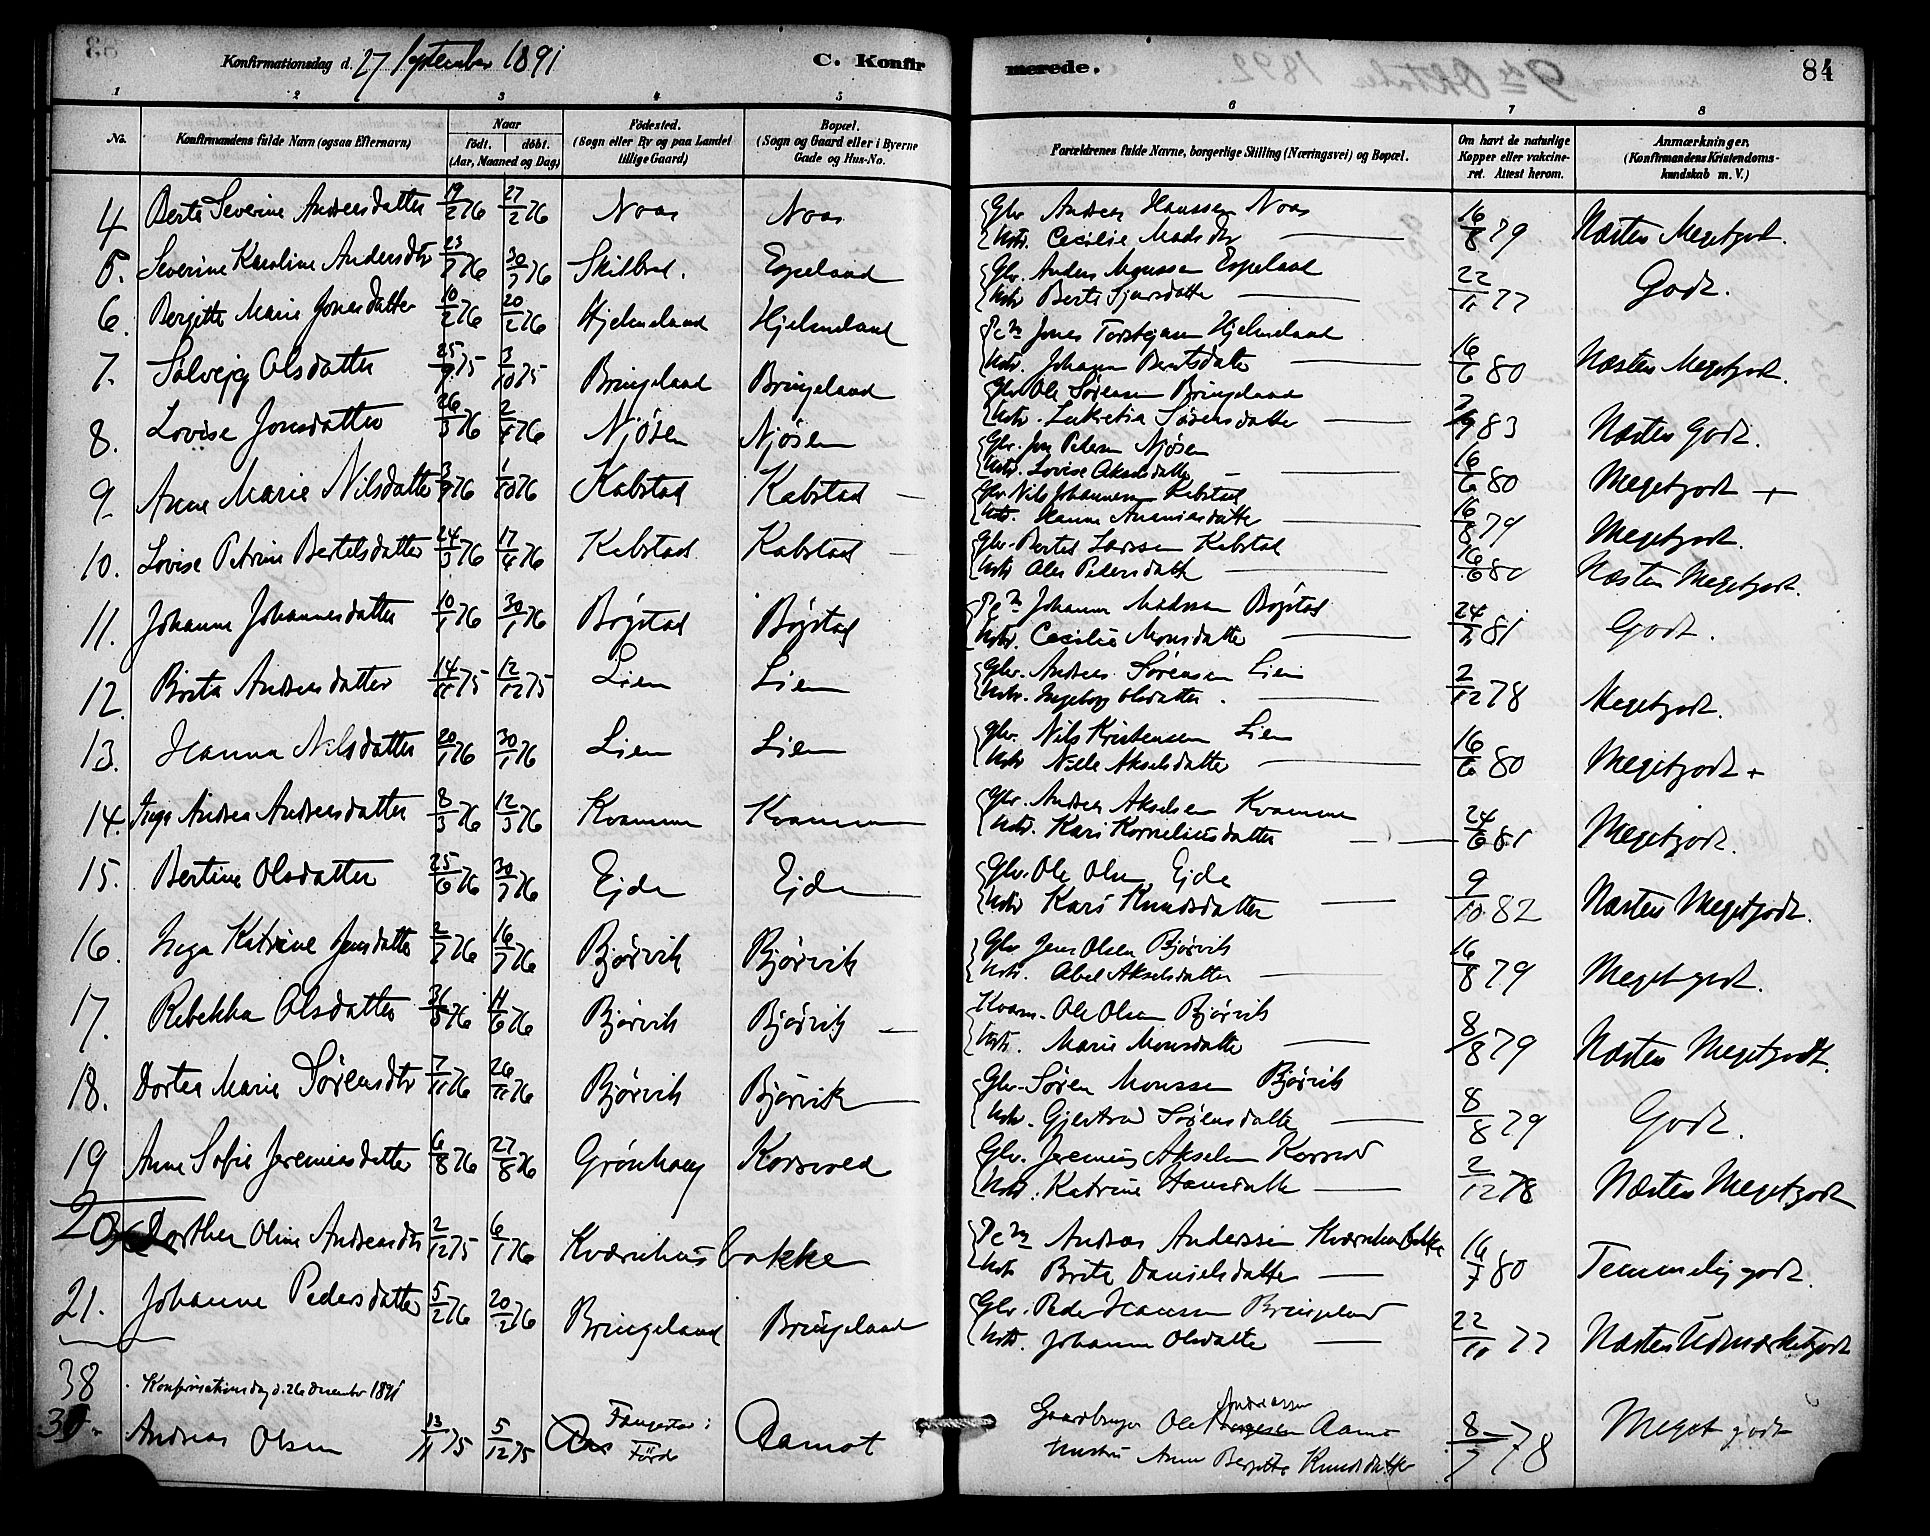 Konfirmationsdag d. 27 September 1891 C. Konfirmerede. 84
1 2 3 4 5 6 7 8
No. Konfirmandens fulde Navn (ogsaa Efternavn) Naar født. døbt. (Aar, Maaned og Dag) Fødested. (Sogn eller By og paa Landet tillige Gaard) Bopæl. (Sogn og Gaard eller i Byerne Gade og Hus-No. Forældrenes fulde Navne, borgerlige Stilling (Næringsvei) og Bopæl. Om havt de naturlige Kopper eller vakcineret. Attest herom. Anmærkninger, (Konfirmandens Kristendomskundskab m. V.)
4 Berte Severine Andreasdatter 19/2 76 27/2 76 Noas Noas Gbr Andreas Hanssen Noas
Ustr. Cecilie Madsdtr 16/8 79 Næsten Megetgodt.
5. Severine Karoline Andersdtr 23/7 76 30/7 76 Skilbred. Espeland Gbr. Anders Monssen Espeland
Ustr Berte Sjursdatter 22/11 77 Godt.
6. Bergitte Marie Jonasdatter 10/2 76 20/2 76 Hjelmeland Hjelmeland Pcm Jonas Torstejnsen Hjelmeland
Ustr. Johanne Berntsdatter 16/6 80 Næsten Megetgodt.
7. Solvejg Olsdatter 25/9 75 3/10 75 Bringeland Bringeland Gbr Ole Sørensen Bringeland
Ustr. Lukretia Sørensdatter 83 Næsten Godt.
8. Lovise Jonsdatter 26/3 76 2/4 76 Njøsen Njøsen Gbr. Jon Pedersen Njøsen
Ustr. Lovise Akselsdatter 16/6 80 Megetgodt +
9. Anne Marie Nilsdatter 3/9 76 1/10 76 Kabstad Kabstad Gbr Nils Johannesen Kabstad
Ustr. Hanne Ananiasdatter 16/8 79 Megetgodt.
10. Lovise Petrine Bertelsdatter 24/3 76 17/4 76 Kabstad Kabstad Gbr. Bertel Larssen Kabstad
Ustr Ales Pedersdatter 16/6 80 Næsten Megetgodt.
11. Johanne Johannesdatter 10/1 76 30/1 76 Bøgstad Bøgstad Pcm Johannes Madssen Bøgstad
Ustr. Cecilie Monsdatter 81 Godt.
12. Brita Andreasdatter 14/11 75 12/12 75 Lien Lien Gbr. Andreas Sørensen Lien
Ustr. Ingeborg Olsdatter 2/12 78 Megetgodt.
13. Hanna Nilsdatter 20/1 76 30/1 76 Lien Lien Gbr. Nils Kristensen Lien
Ustr Nille Akselsdatter 16/6 80 Megetgodt +
14. Inga Andrea Andreasdatter 8/3 76 12/3 76 Kvamme Kvamme Gbr. Andreas Akselsen Kvamme
Ustr. Kari Korneliusdatter 24/6 81 Megetgodt.
15. Bertine Olsdatter 25/6 76 30/7 76 Ejde Ejde Gbr. Ole Olsen Ejde
Ustr Kari Knudsdatter 9/10 82 Næsten Megetgodt.
16. Inga Katrine Jensdatter 2/7 76 16/7 76 Bjørvik Bjørvik Gbr Jens Olsen Bjørvik
Ustr. Abel Akselsdatter 16/8 79 Megetgodt.
17. Rebekka Olsdatter 31/5 76 11/6 76 Bjørvik Bjørvik Kvam. Ole Olsen Bjørvik
Ustr. Marie Monsdatter 8/8 79 Næsten Megetgodt.
18. Dortea Marie Sørensdtr 7/11 76 26/11 76 Bjørvik Bjørvik Gbr. Søren Monssen Bjørvik
Ustr. Gjertrud Sørensdatter 8/8 79 Godt.
19 Anne Sofie Jeremiasdatter 6/8 76 27/8 76 Grønhaug Korsvold Gbr. Jeremias Akselsen Korsvold
Ustr. Katrine Hansdatter 2/12 78 Næsten Megetgodt
20 Dorthea Oline Andreasdtr 2/12 75 6/1 76 Kværnhusbakke Pcm Andreas Anderssen Kværnhusbakke
Ustr Brite Danielsdatter 16/7 80 Temmelig godt.
21. Johanne Pedersdatter 5/2 76 20/2 76 Bringeland Bringeland Gbr. Peder Hanssen Bringeland
Ustr. Johanne Olsdatter 22/11 77 Næsten Udmærketgodt
38 Konfirmationsdag d. 26 december 1891
39. Andreas Olsen 13/11 75 5/12 75 Førde Aamot Gaardbruger Ole Andreassen Aamot
Hustru Anne Bergitte Knudsdatter 8/7 78 Meget godt